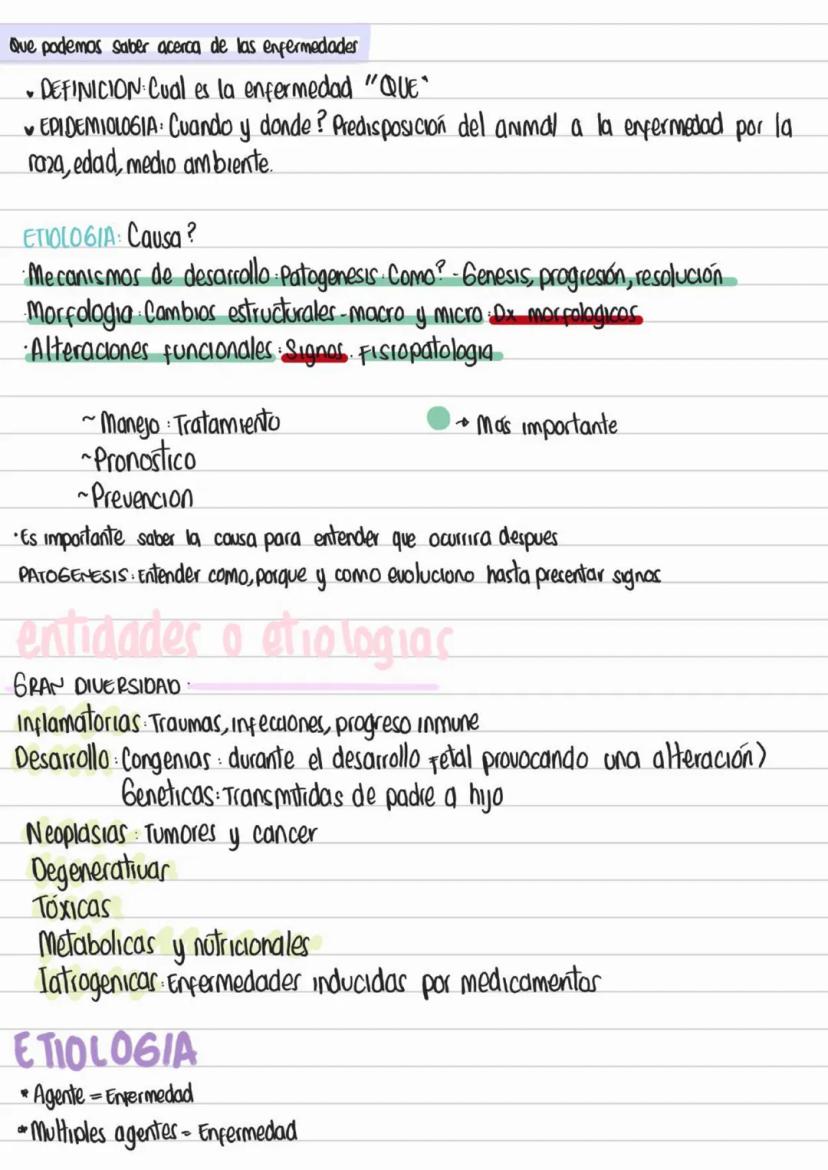 Que podemos saber acerca de las enfermedades
DEFINICION: Cual es la enfermedad "QUE"
EPIDEMIOLOGIA: Cuando y donde? Predisposición del animal a la enfermedad por la
raza, edad, medio ambiente.
ETIOLOGIA: Causa?
·Mecanismos de desarrollo: Patogenesis: Como? - Genesis, progresión, resolución
·Morfologia: Cambios estructurales - macro y micro: Dx morfologicos
·Alteraciones funcionales: Signos. Fisiopatologia
~ Manejo: Tratamiento
→ Más importante
~Pronostico
~Prevencion
·Es importante saber la causa para entender que ocurrira despues
PATOGENESIS: Entender como, porque y como evoluciono hasta presentar signos
entidades o etiologias
GRAN DIVERSIDAD:
Inflamatorias: Traumas, infecciones, progreso inmune
Desarrollo: Congenias: durante el desarrollo fetal provocando una alteración)
Geneticas: Transmitidas de padre a hijo
Neoplasias: Tumores y cancer
Degenerativas
Tóxicas
Metabolicas y nutricionales
Iatrogenicas: Enfermedades inducidas por medicamentos
ETIOLOGIA
* Agente = Enfermedad
* Multiples agentes = Enfermedad